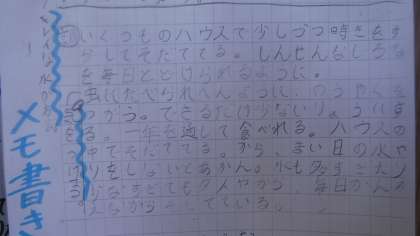 いくつものハウスで少しづつ時きをず
らしてそだててる。しんせんなしろな
を毎日とどけられるように。
虫にたべられへんように、のうやくを
つかう。できるだけ少ないりょうにす
る。一年を通して食べれる。ハウスの
中でそだててる。から、まい日の水や
りをしないとあかん。水も多すぎたり
少なすぎてもダメやから、毎日かんさ
つしながらそだてている。
メモ書き